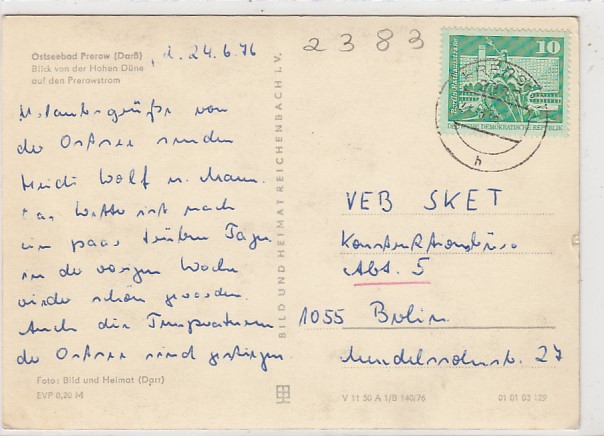 Ostseebad Prerow (Darß)
Blick von der Hohen Düne
auf den Prerowstrom
24.6.76
2383
Urlaubsgrüße von
der Ostsee senden
Heidi Wolf u. Mann.
Das Wetter ist nach
ein paar trüben Tagen
in der vorigen Woche
wieder schön geworden.
Auch die Temperaturen
der Ostsee sind gestiegen.
Foto: Bild und Heimat (Darr)
EVP 0,20 M
BILD UND HEIMAT REICHENBACH I. V.
10
Berlin, Rathausstraße
DEUTSCHE DEMOKRATISCHE REPUBLIK
h
VEB SKET
Konstruktionsbüro
Abt. 5
1055 Berlin
Mendelssohnstr. 27
V 11 50 A 1/B 140/76
01 01 03 129